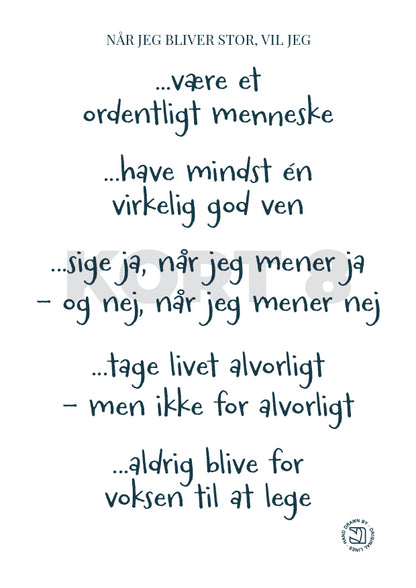 NÅR JEG BLIVER STOR, VIL JEG
...være et
ordentligt menneske
...have mindst én
virkelig god ven
KORT 8
...sige ja, når jeg mener ja
– og nej, når jeg mener nej
...tage livet alvorligt
– men ikke for alvorligt
...aldrig blive for
voksen til at lege
HAND DRAWN BY · ORIGINAL LINES ·